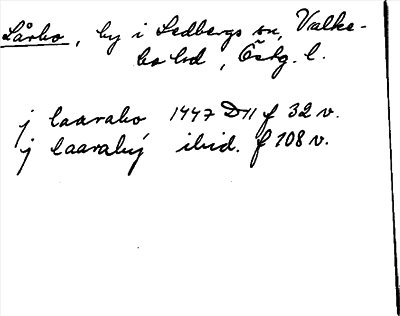 Lårbo, by i Ledbergs sn, Valke-
bo hd, Östg. l.
j laarabo 1447 D11 f 32 v.
j laaraby ibid. f 108 v.